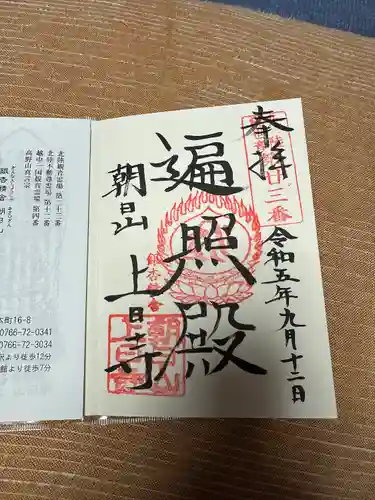 奉拝
遍照殿
朝日山
上日寺
令和五年九月十二日
廿三番
北陸観音霊場 第二十三番
北陸不動尊霊場 第十二番
越中一国観音霊場 第四番
高野山真言宗
本町16-8
0766-72-0341
0766-72-3034
駅より徒歩12分
館より徒歩7分